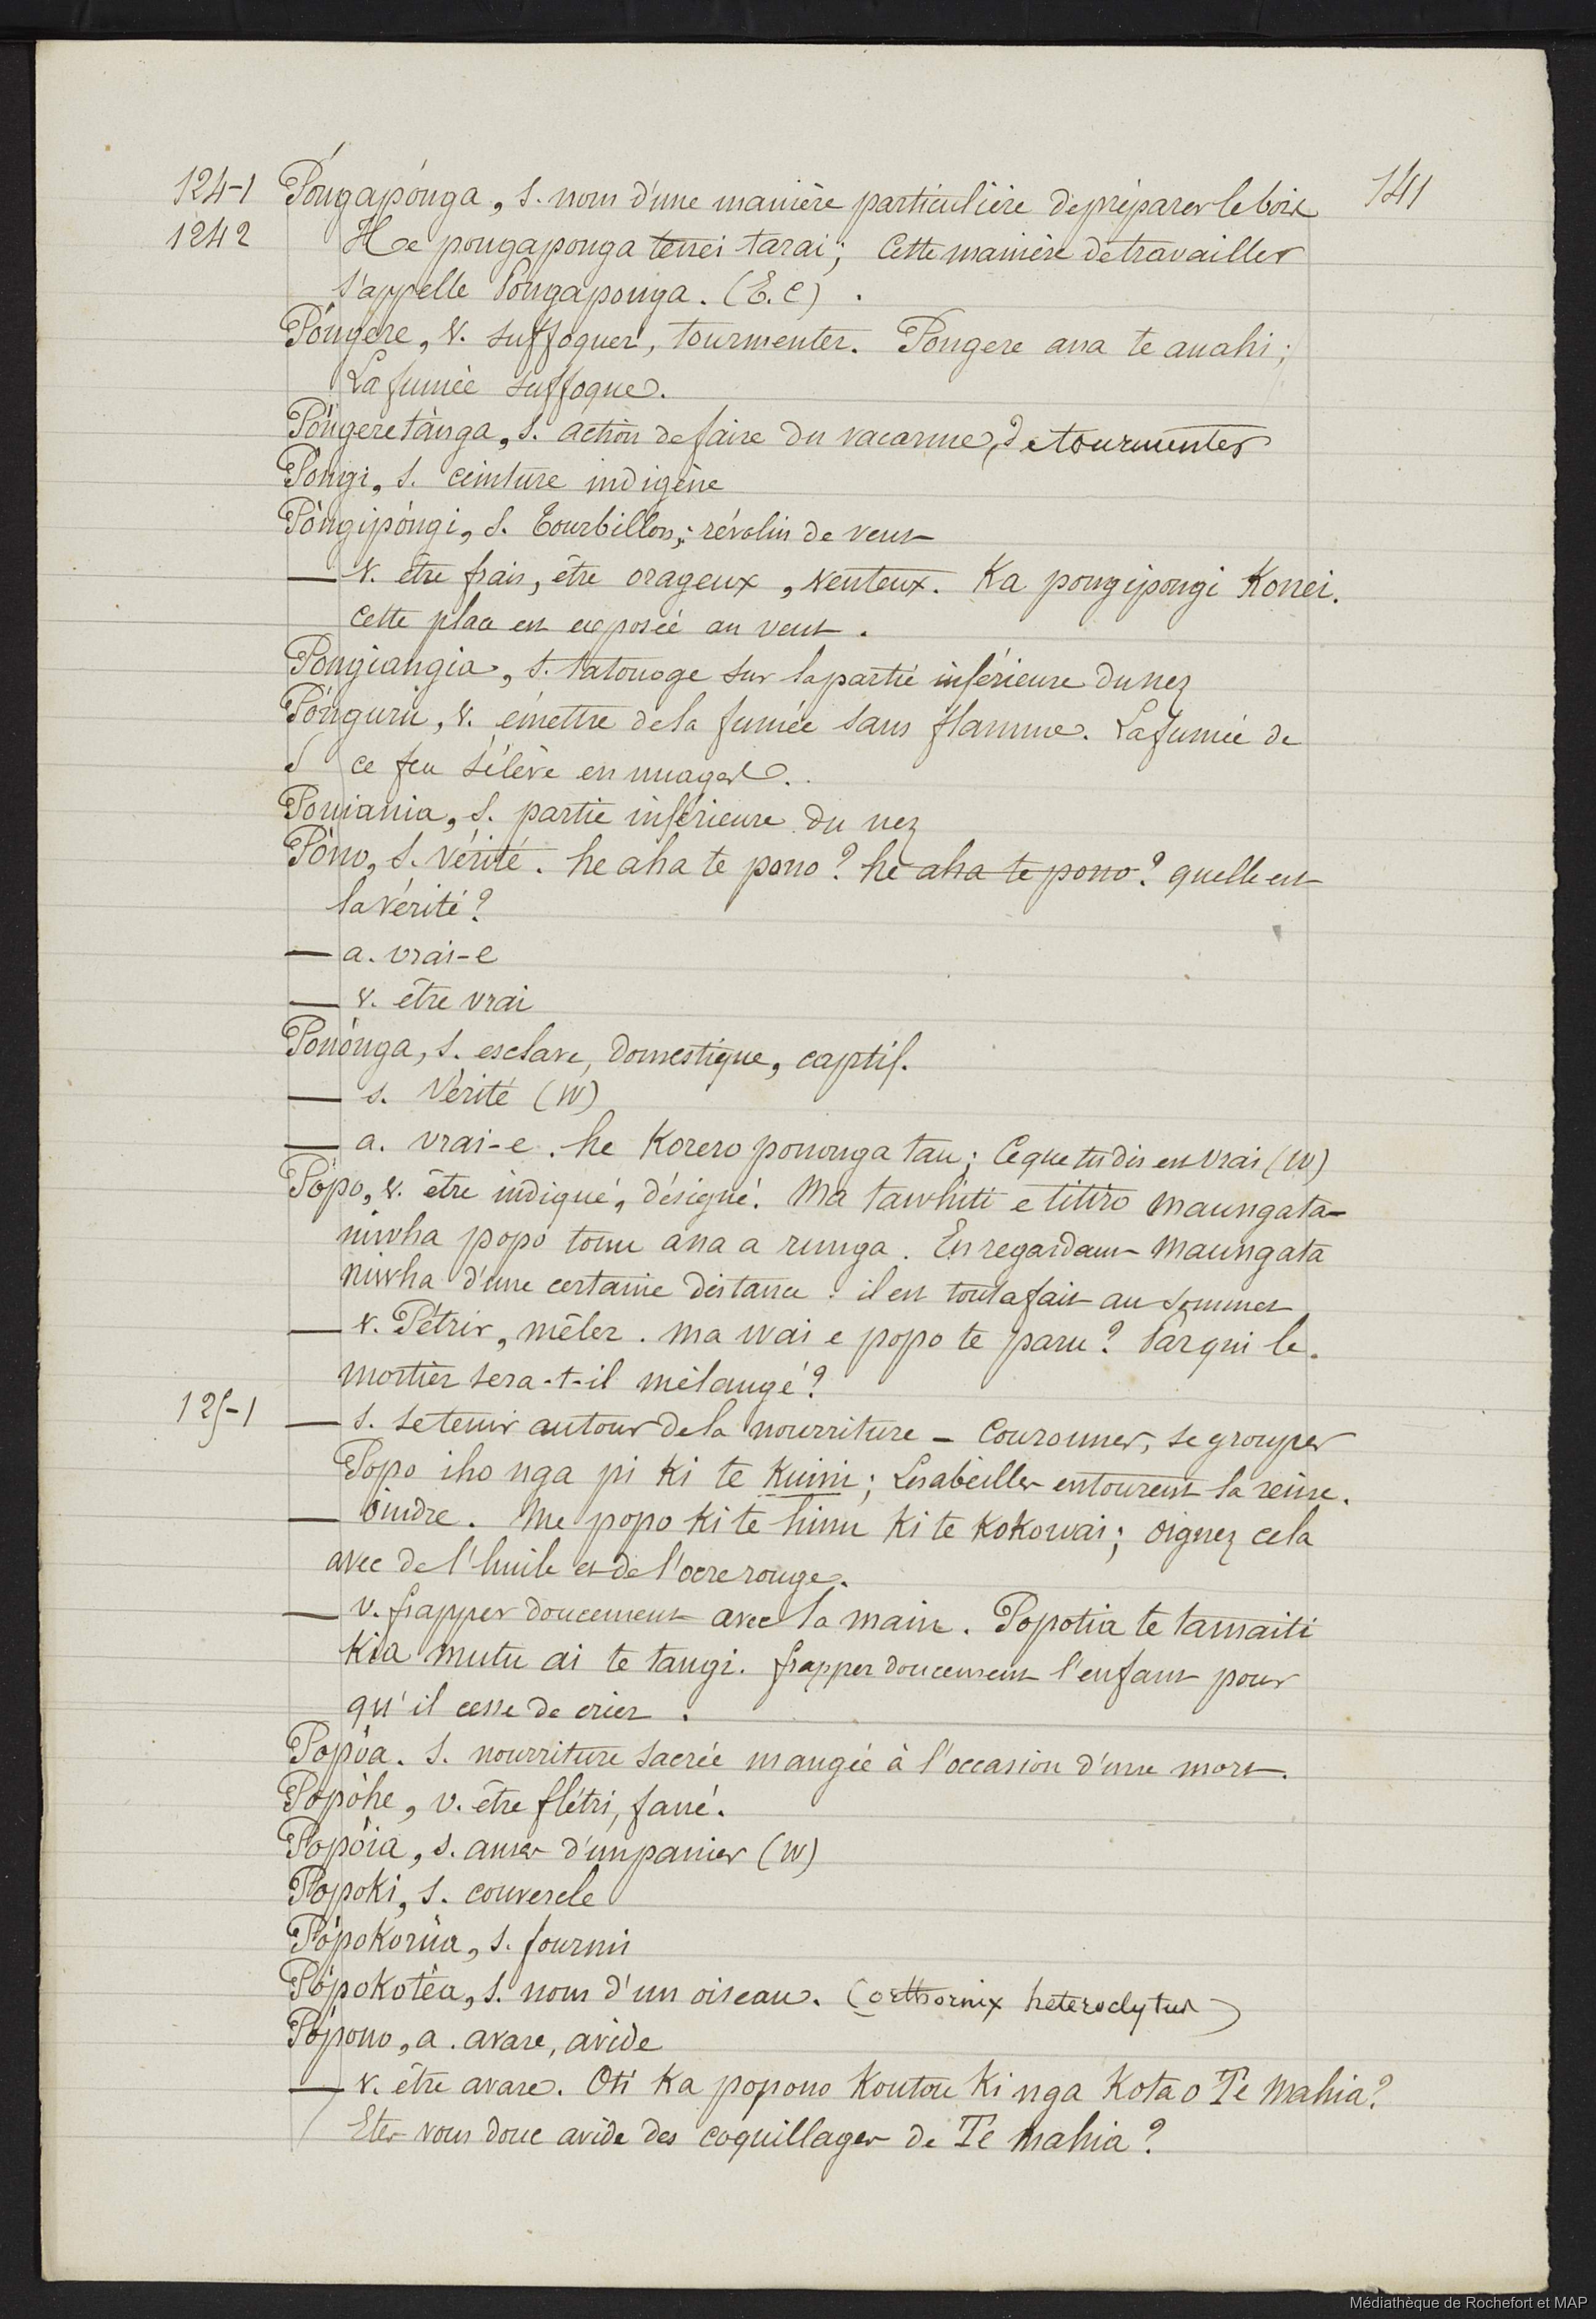 124-1 Póngapónga, s. nom d'une manière particulière de préparer le bois 141
1242 He pongaponga tenei tarai; Cette manière de travailler
s'appelle Pongaponga. (E.C)
Póngere, v. suffoquer, tourmenter. Pongere ana te auahi;
La fumée suffoque.
Póngeretánga, s. action de faire du vacarme, de tourmenter
Póngi, s. ceinture indigène
Póngipóngi, s. Tourbillon; révolin de vent
— v. être frais, être orageux, venteux. Ka pongipongi Konei.
cette place est exposée au vent.
Pongiangia, s. tatouage sur la partie inférieure du nez
Pónguru, v. émettre de la fumée sans flamme. La fumée de
ce feu s'élève en nuages.
Poniania, s. partie inférieure du nez
Póno, s. vérité. he aha te pono? he aha te pono? quelle est
la vérité?
— a. vrai-e
— v. être vrai
Ponónga, s. esclave, domestique, captif.
— s. Vérité (W)
— a. vrai-e. he Korero pononga tau; Ce que tu dis est vrai (W)
Pópo, v. être indiqué, désigné. Ma tawhiti e titiro Maungata-
niwha popo tonu ana a runga. En regardant Maungata
niwha d'une certaine distance. il est tout à fait au sommet
— v. Pétrir, mêler. ma wai e popo te paru? Par qui le
mortier sera-t-il mélangé?
125-1 — s. se tenir autour de la nourriture - Couronner, se grouper
Popo iho nga pi ki te Kuini; Les abeilles entourent la reine.
— oindre. Me popo ki te hinu ki te Kokowai; oignez cela
avec de l'huile et de l'ocre rouge.
— v. frapper doucement avec la main. Popotia te tamaiti
Kia mutu ai te tangi. frapper doucement l'enfant pour
qu'il cesse de crier.
Popóa. s. nourriture sacrée mangée à l'occasion d'une mort.
Popóhe, v. être flétri, fané.
Popóia, s. anses d'un panier (W)
Popoki, s. couvercle
Pópokorúa, s. fourmi
Pópokotéa, s. nom d'un oiseau. (orthornix heteroclytus)
Pópono, a. avare, avide
— v. être avare. Oti Ka popono Koutou Ki nga Kota o Te Mahia?
Etes vous donc avide des coquillages de Te Mahia?
Médiathèque de Rochefort et MAP